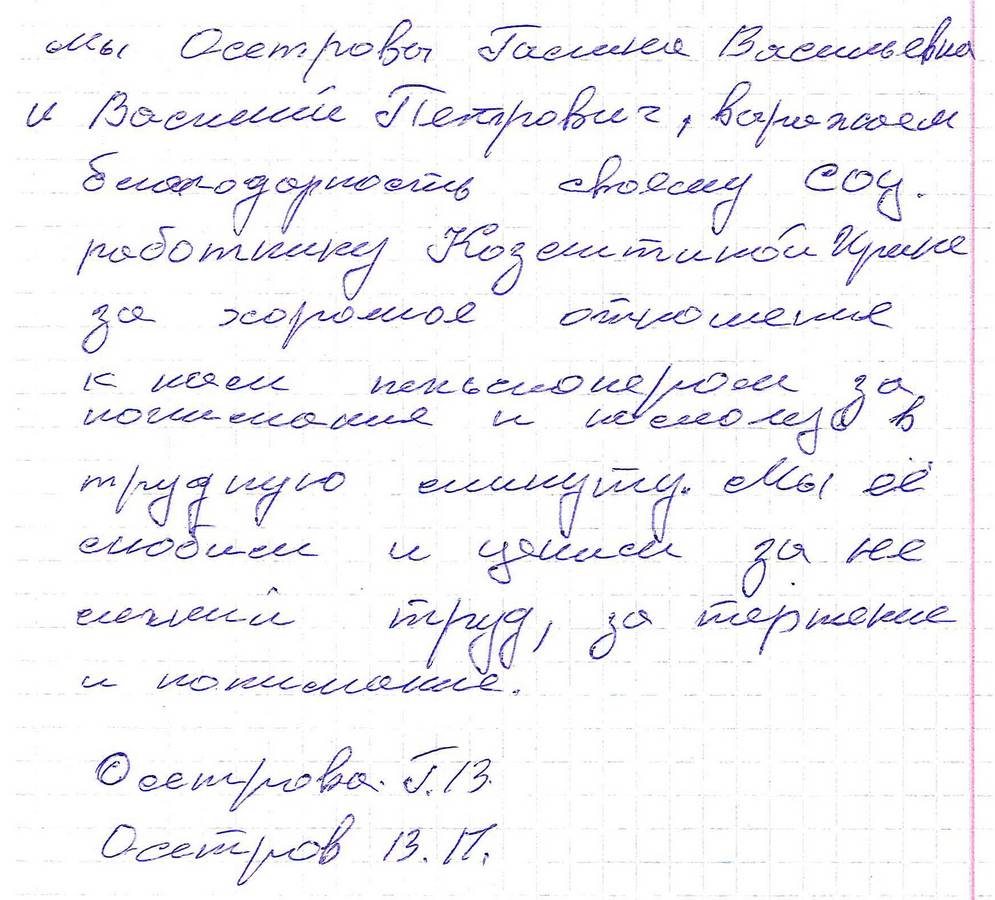 мы Осетровы Галина Васильевна
и Василий Петрович, выражаем
благодарность своему соц.
работнику Козлитиной Ирине
за хорошое отношения
к нам пенсионером за
понимания и помощь в
трудную минуту. Мы её
любим и ценим за не
лёгкий труд, за терпение
и понимание.
Осетрова Г.В.
Осетров В.П.